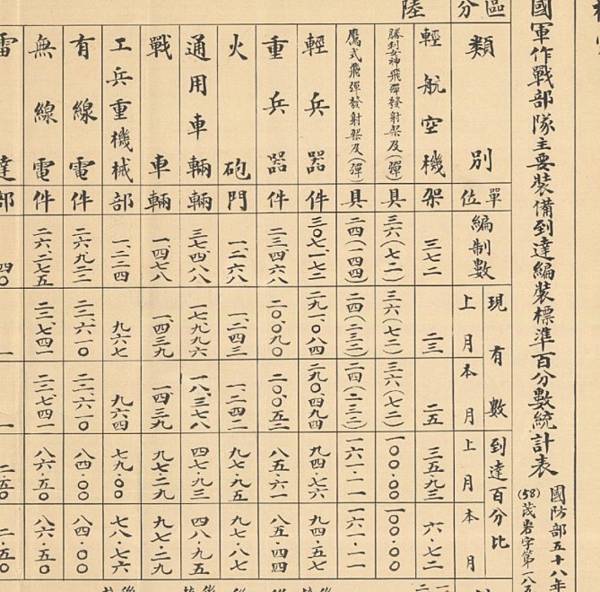 國軍作戰部隊主要裝備到達編裝標準百分數統計表
國防部五十八年
(58)茂岩字第一八五
區分 陸
類別 單位 編制數 現有數 上月 本月 到達百分比 上月 本月
輕航空機 架 三七二 二三 二五 三五・九三 六・七二
勝利女神飛彈發射架及(彈) 具 三六(七二) 三六(七二) 三六(七二) 一〇〇・〇〇 一〇〇・〇〇
鷹式飛彈發射架及(彈) 具 二四(一四四) 二四(二三二) 二四(二三二) 一六一・一一 一六一・一一
輕兵器 件 三〇七、一七二 二九一、〇八四 二九〇四九四 九四・七六 九四・五七
重兵器 件 二三四六八 二〇〇九〇 二〇〇五二 八五・六一 八五・四四
火砲 門 一、二六八 一、二四三 一、二四二 九七・八五 九七・八七
通用車輛 輛 三七四八八 一七九九六 一八、三七八 四七・九三 四八・九五
戰車 輛 一、四七八 一、四三九 一、四三九 九七・二九 九七・二九
工兵重機械 部 一、二二四 九六七 九六四 七九・〇〇 七八・七六
有線電 件 二六九二二 二二、六一〇 二二、六一〇 八四・〇〇 八四・〇〇
無線電 件 二六、二七五 二二、七四一 二二、七四一 八六・五〇 八六・五〇
雷達 部 四〇 一 一 二・五〇 二・五〇